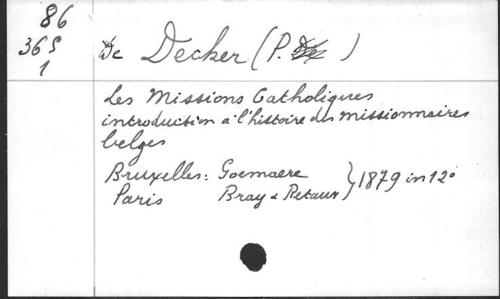 86
365
1
De Decker (P. De )
Les Missions Catholiques
introduction à l'histoire des missionnaires
belges
Bruxelles: Goemaere
Paris Bray & Retaux } 1879 in 12°